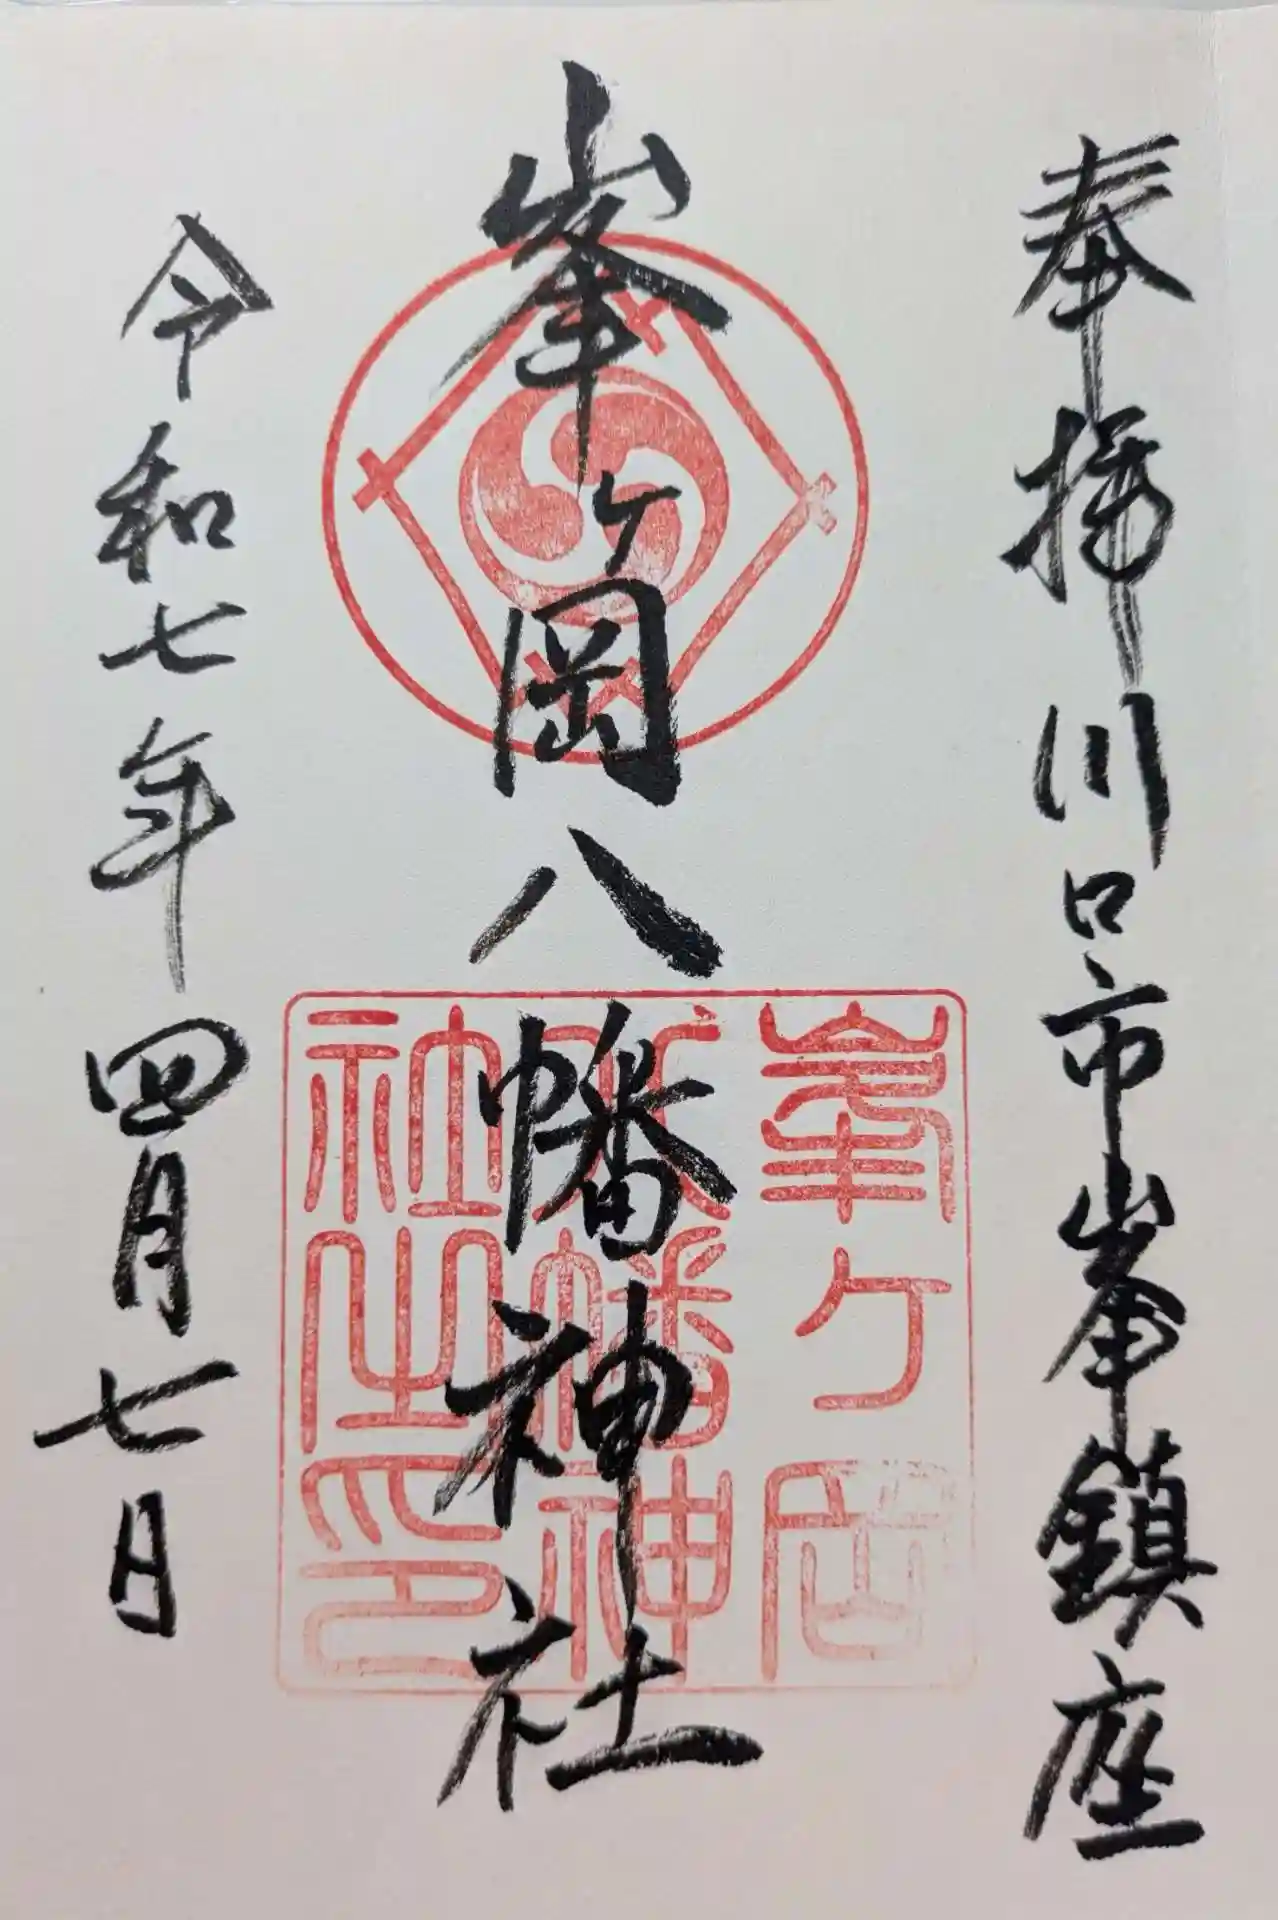 奉拝川口市峯鎮座
峯ヶ岡八幡神社
令和七年四月七日
峯ヶ岡
八幡神
社之印